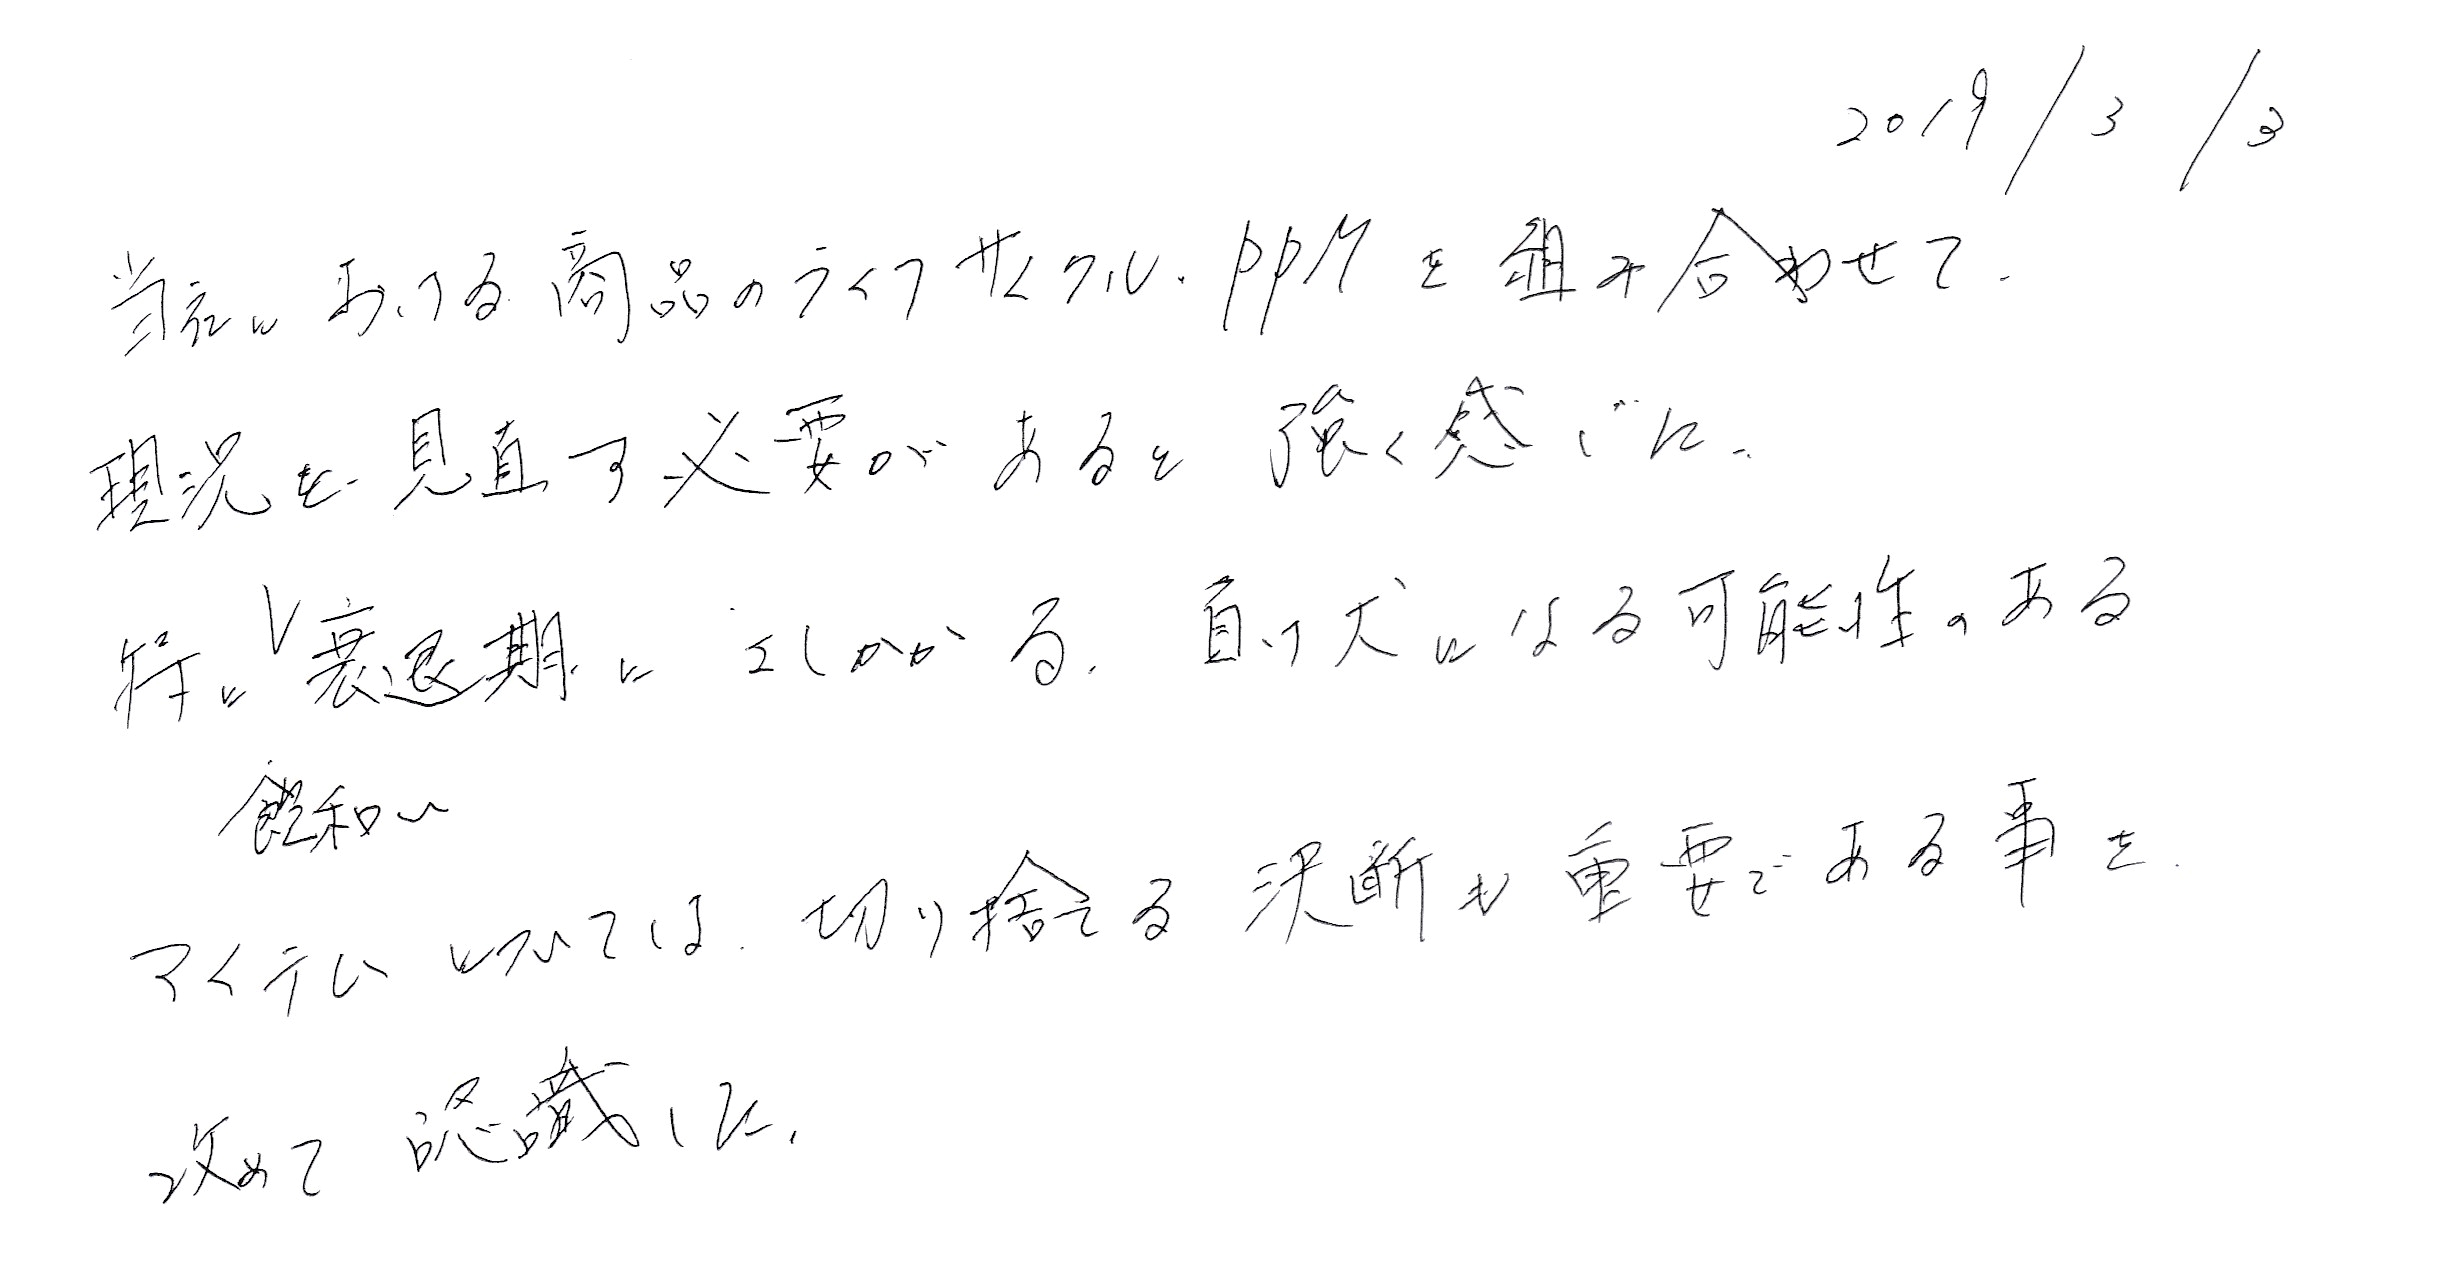 2019/3/3
当社における商品のライフサイクル、PPMを組み合わせて、
現況を見直す必要があると強く感じた。
特に衰退期にさしかかる、負け犬になる可能性のある
飽和〜
アイテムについては、切り捨てる決断も重要である事を、
改めて認識した。